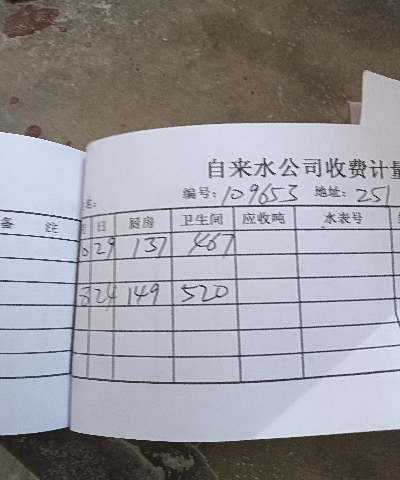 自来水公司收费计量
名: 编号: 109653 地址: 251
备 注 日 厨房 卫生间 应收吨 水表号
29 137 467
3 24 149 520